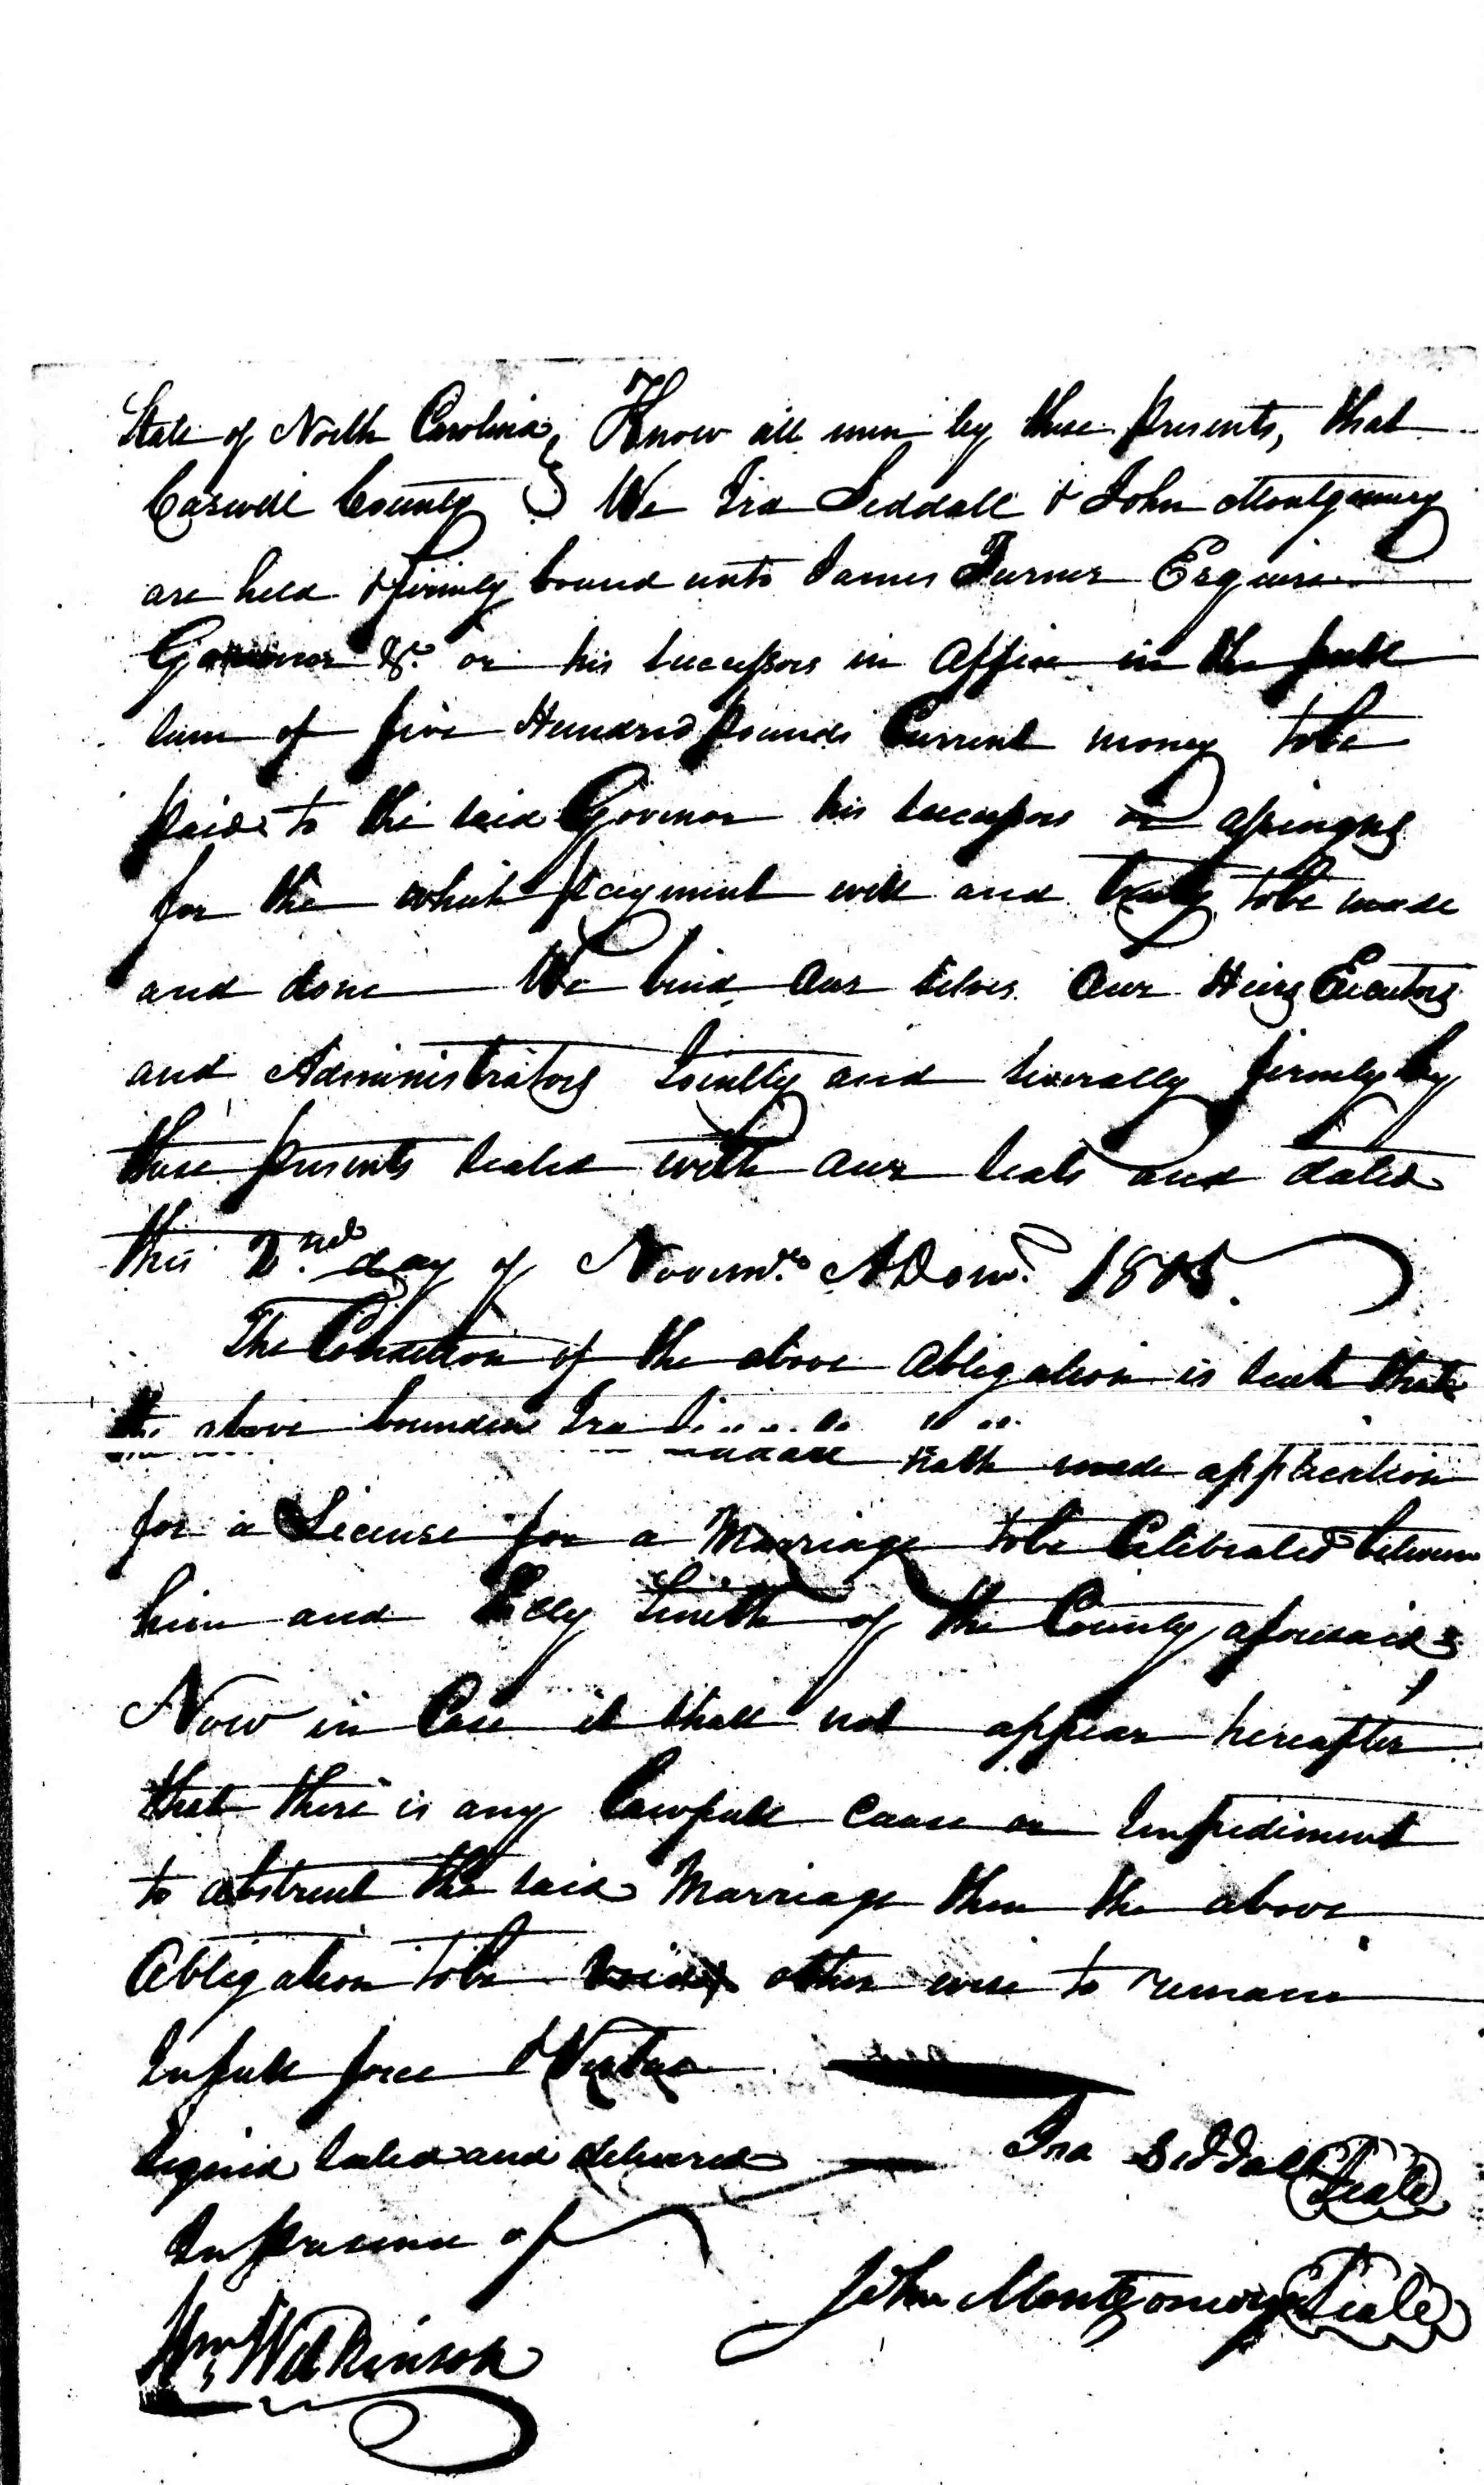 State of North Carolina } Know all men by these presents, that
Caswell County } We Ira Siddall & John Montgomery
are held & firmly bound unto James Turner Esquire
Governor &c or his Successors in office in the full
Sum of five Hundred pounds Current money tobe
paid to the said Govenor his Successors or assigns
for the which payment will and truly tobe made
and done We bind our selves our Heirs Executors
and Administrators Jointly and Severally firmly by
these presents sealed with our seals and dated
this 2nd day of Novemr. A Dom. 1805.
The Condition of the above obligation is such that
the above bounden Ira
hath made application
for a License for a Marriage tobe Celibrated between
him and Smith of the County aforesaid
Now in Case it shall not appear hereafter
that there is any lawfull cause or Impediment
to obstruct the said Marriage then the above
Obligation tobe void other wise to remain
In full force & Virtue
Signed sealed and delivered Ira Siddall Seale
In presence of
John Montgomery Seale
Wm. Wilkinson